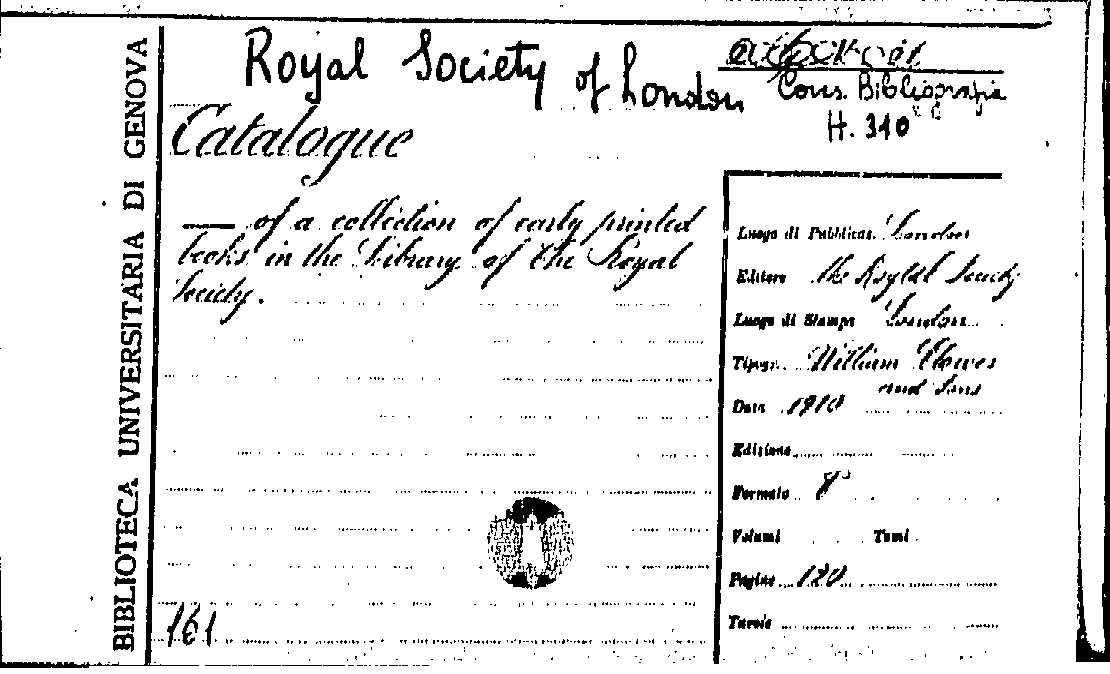 BIBLIOTECA UNIVERSITARIA DI GENOVA
Royal Society of London
Cons. Bibliografia
H. 310
Catalogue
— of a collection of early printed
books in the Library of the Royal
Society.
161
Luogo di Pubblicaz. London
Editore the Royal Society
Luogo di Stampa London
Tipogr. William Clowes
and Sons
Data 1910
Edizione
Formato 8°
Volumi Tomi
Pagine 120
Tavole